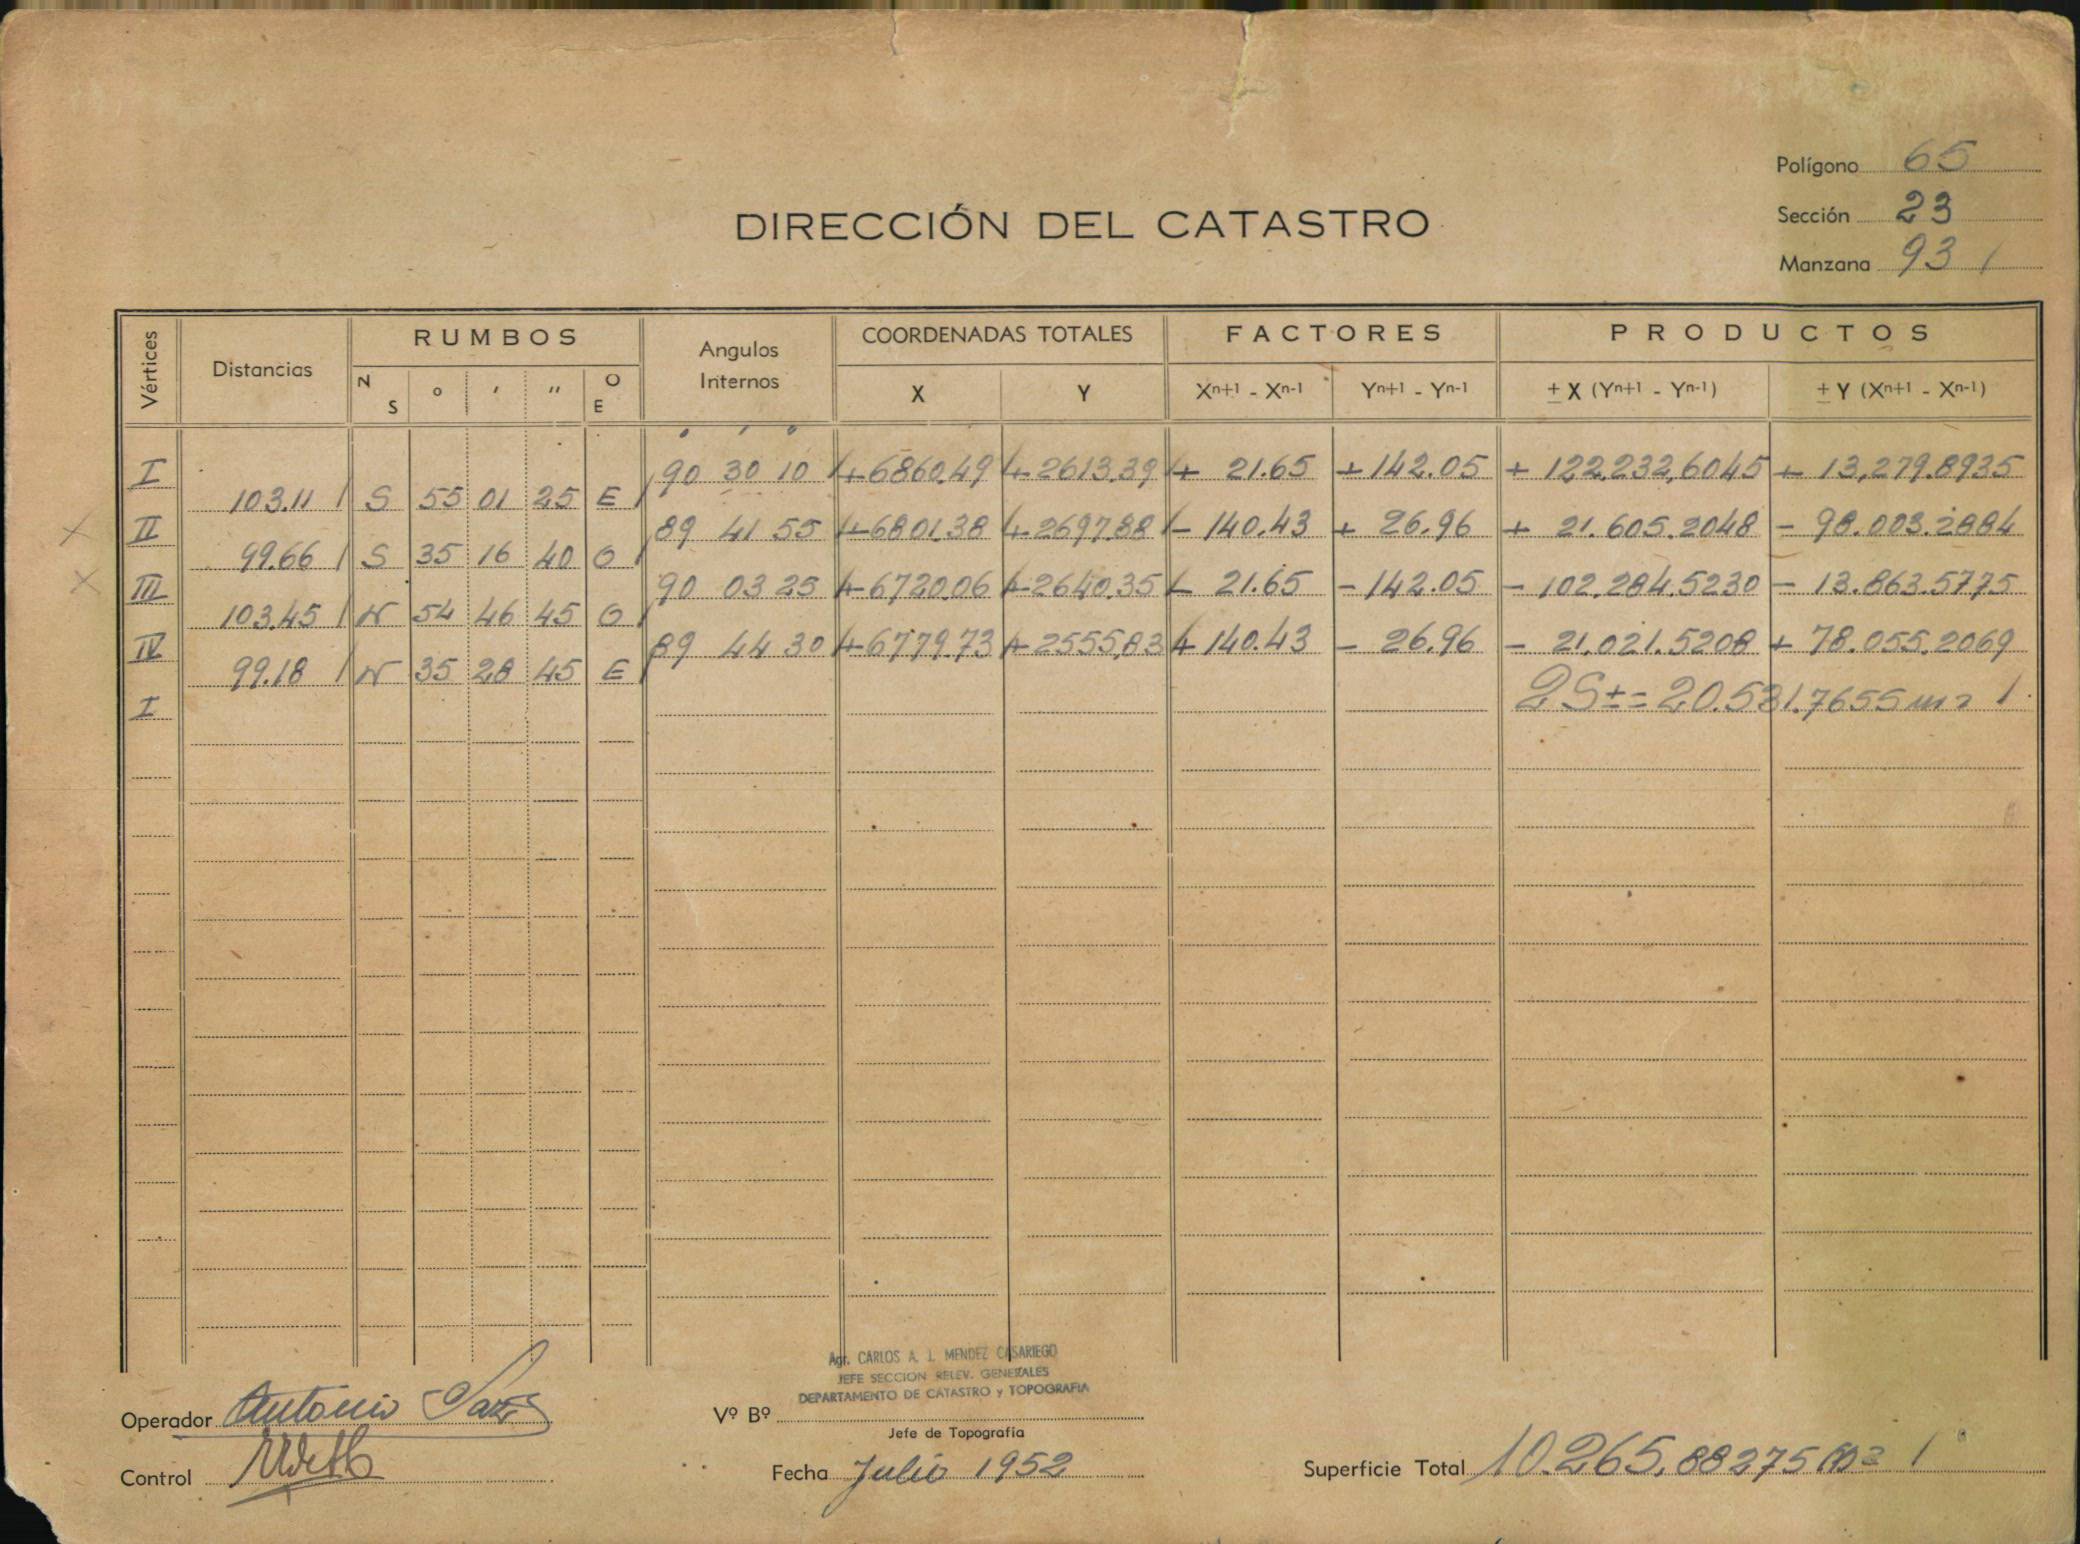 Polígono 65
Sección 23
Manzana 93 /
DIRECCIÓN DEL CATASTRO
Vértices Distancias RUMBOS Angulos Internos COORDENADAS TOTALES FACTORES PRODUCTOS
N S ° ' " O E X Y Xⁿ⁺¹ - Xⁿ⁻¹ Yⁿ⁺¹ - Yⁿ⁻¹ ± X (Yⁿ⁺¹ - Yⁿ⁻¹) ± Y (Xⁿ⁺¹ - Xⁿ⁻¹)
I 90 30 10 / +6860.49 / +2613.39 + 21.65 +142.05 + 122.232,6045 + 13,279.8935
103.11 / S 55 01 25 E /
II 89 41 55 / +6801.38 / +2697.88 / - 140.43 + 26.96 + 21.605.2048 - 98.003.2884
99.66 / S 35 16 40 O /
III 90 03 25 / +6720.06 / +2640.35 / - 21.65 - 142.05 - 102.284.5230 - 13.863.5775
103.45 / N 54 46 45 O /
IV 89 44 30 / +6779.73 / +2555,83 + 140.43 - 26.96 - 21.021.5208 + 78.055.2069
99.18 / N 35 28 45 E /
I 2S± = 20.531.7655 m2 /
Agr. CARLOS A. J. MENDEZ CASARIEGO
JEFE SECCION RELEV. GENERALES
DEPARTAMENTO DE CATASTRO y TOPOGRAFIA
Operador Antonio
Vº Bº
Jefe de Topografía
Control
Fecha Julio 1952
Superficie Total 10.265,88275 m2 /